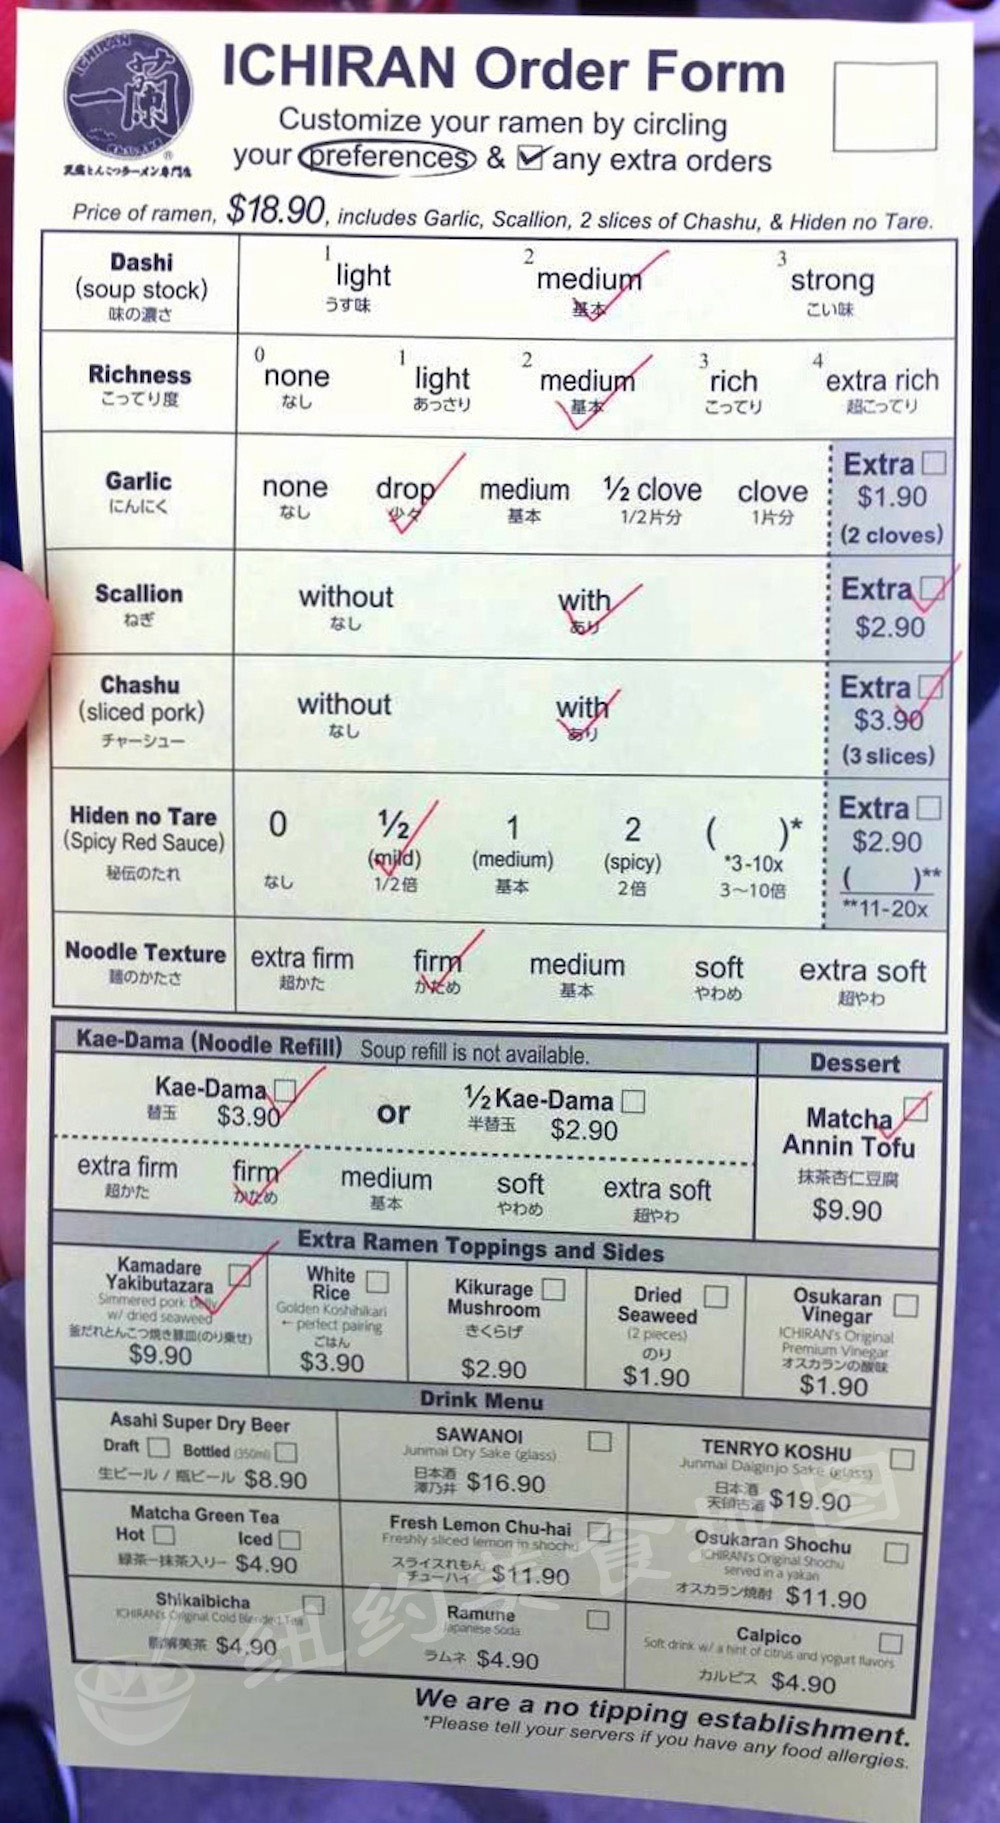 ICHIRAN
一蘭
天然とんこつラーメン専門店
ICHIRAN Order Form
Customize your ramen by circling
your preferences & any extra orders
Price of ramen, $18.90, includes Garlic, Scallion, 2 slices of Chashu, & Hiden no Tare.
Dashi
(soup stock)
味の濃さ
1 light うす味
2 medium 基本
3 strong こい味
Richness
こってり度
0 none なし
1 light あっさり
2 medium 基本
3 rich こってり
4 extra rich 超こってり
Garlic
にんにく
none なし
drop 少々
medium 基本
½ clove 1/2片分
clove 1片分
Extra
$1.90
(2 cloves)
Scallion
ねぎ
without なし
with あり
Extra
$2.90
Chashu
(sliced pork)
チャーシュー
without なし
with あり
Extra
$3.90
(3 slices)
Hiden no Tare
(Spicy Red Sauce)
秘伝のたれ
0 なし
½ (mild) 1/2倍
1 (medium) 基本
2 (spicy) 2倍
( )* *3-10x 3～10倍
Extra
$2.90
( )**
**11-20x
Noodle Texture
麺のかたさ
extra firm 超かた
firm かため
medium 基本
soft やわめ
extra soft 超やわ
Kae-Dama (Noodle Refill) Soup refill is not available.
Kae-Dama
替玉 $3.90
or
½ Kae-Dama
半替玉 $2.90
extra firm 超かた
firm かため
medium 基本
soft やわめ
extra soft 超やわ
Dessert
Matcha
Annin Tofu
抹茶杏仁豆腐
$9.90
Extra Ramen Toppings and Sides
Kamadare
Yakibutazara
Simmered pork belly
w/ dried seaweed
釜だれとんこつ焼き豚皿(のり乗せ)
$9.90
White
Rice
Golden Koshihikari
← perfect pairing
ごはん
$3.90
Kikurage
Mushroom
きくらげ
$2.90
Dried
Seaweed
(2 pieces)
のり
$1.90
Osukaran
Vinegar
ICHIRAN's Original
Premium Vinegar
オスカランの酸味
$1.90
Drink Menu
Asahi Super Dry Beer
Draft Bottled (350ml)
生ビール / 瓶ビール $8.90
SAWANOI
Junmai Dry Sake (glass)
日本酒
澤乃井 $16.90
TENRYO KOSHU
Junmai Daiginjo Sake (glass)
日本酒
天領古酒 $19.90
Matcha Green Tea
Hot Iced
緑茶ー抹茶入りー $4.90
Fresh Lemon Chu-hai
Freshly sliced lemon in shochu
スライスれもん
チューハイ $11.90
Osukaran Shochu
ICHIRAN's Original Shochu
served in a yakan
オスカラン焼酎 $11.90
Shikaibicha
ICHIRAN's Original Cold Blended Tea
$4.90
Ramune
Japanese Soda
ラムネ $4.90
Calpico
Soft drink w/ a hint of citrus and yogurt flavors
カルピス $4.90
We are a no tipping establishment.
*Please tell your servers if you have any food allergies.
纽约美食地图